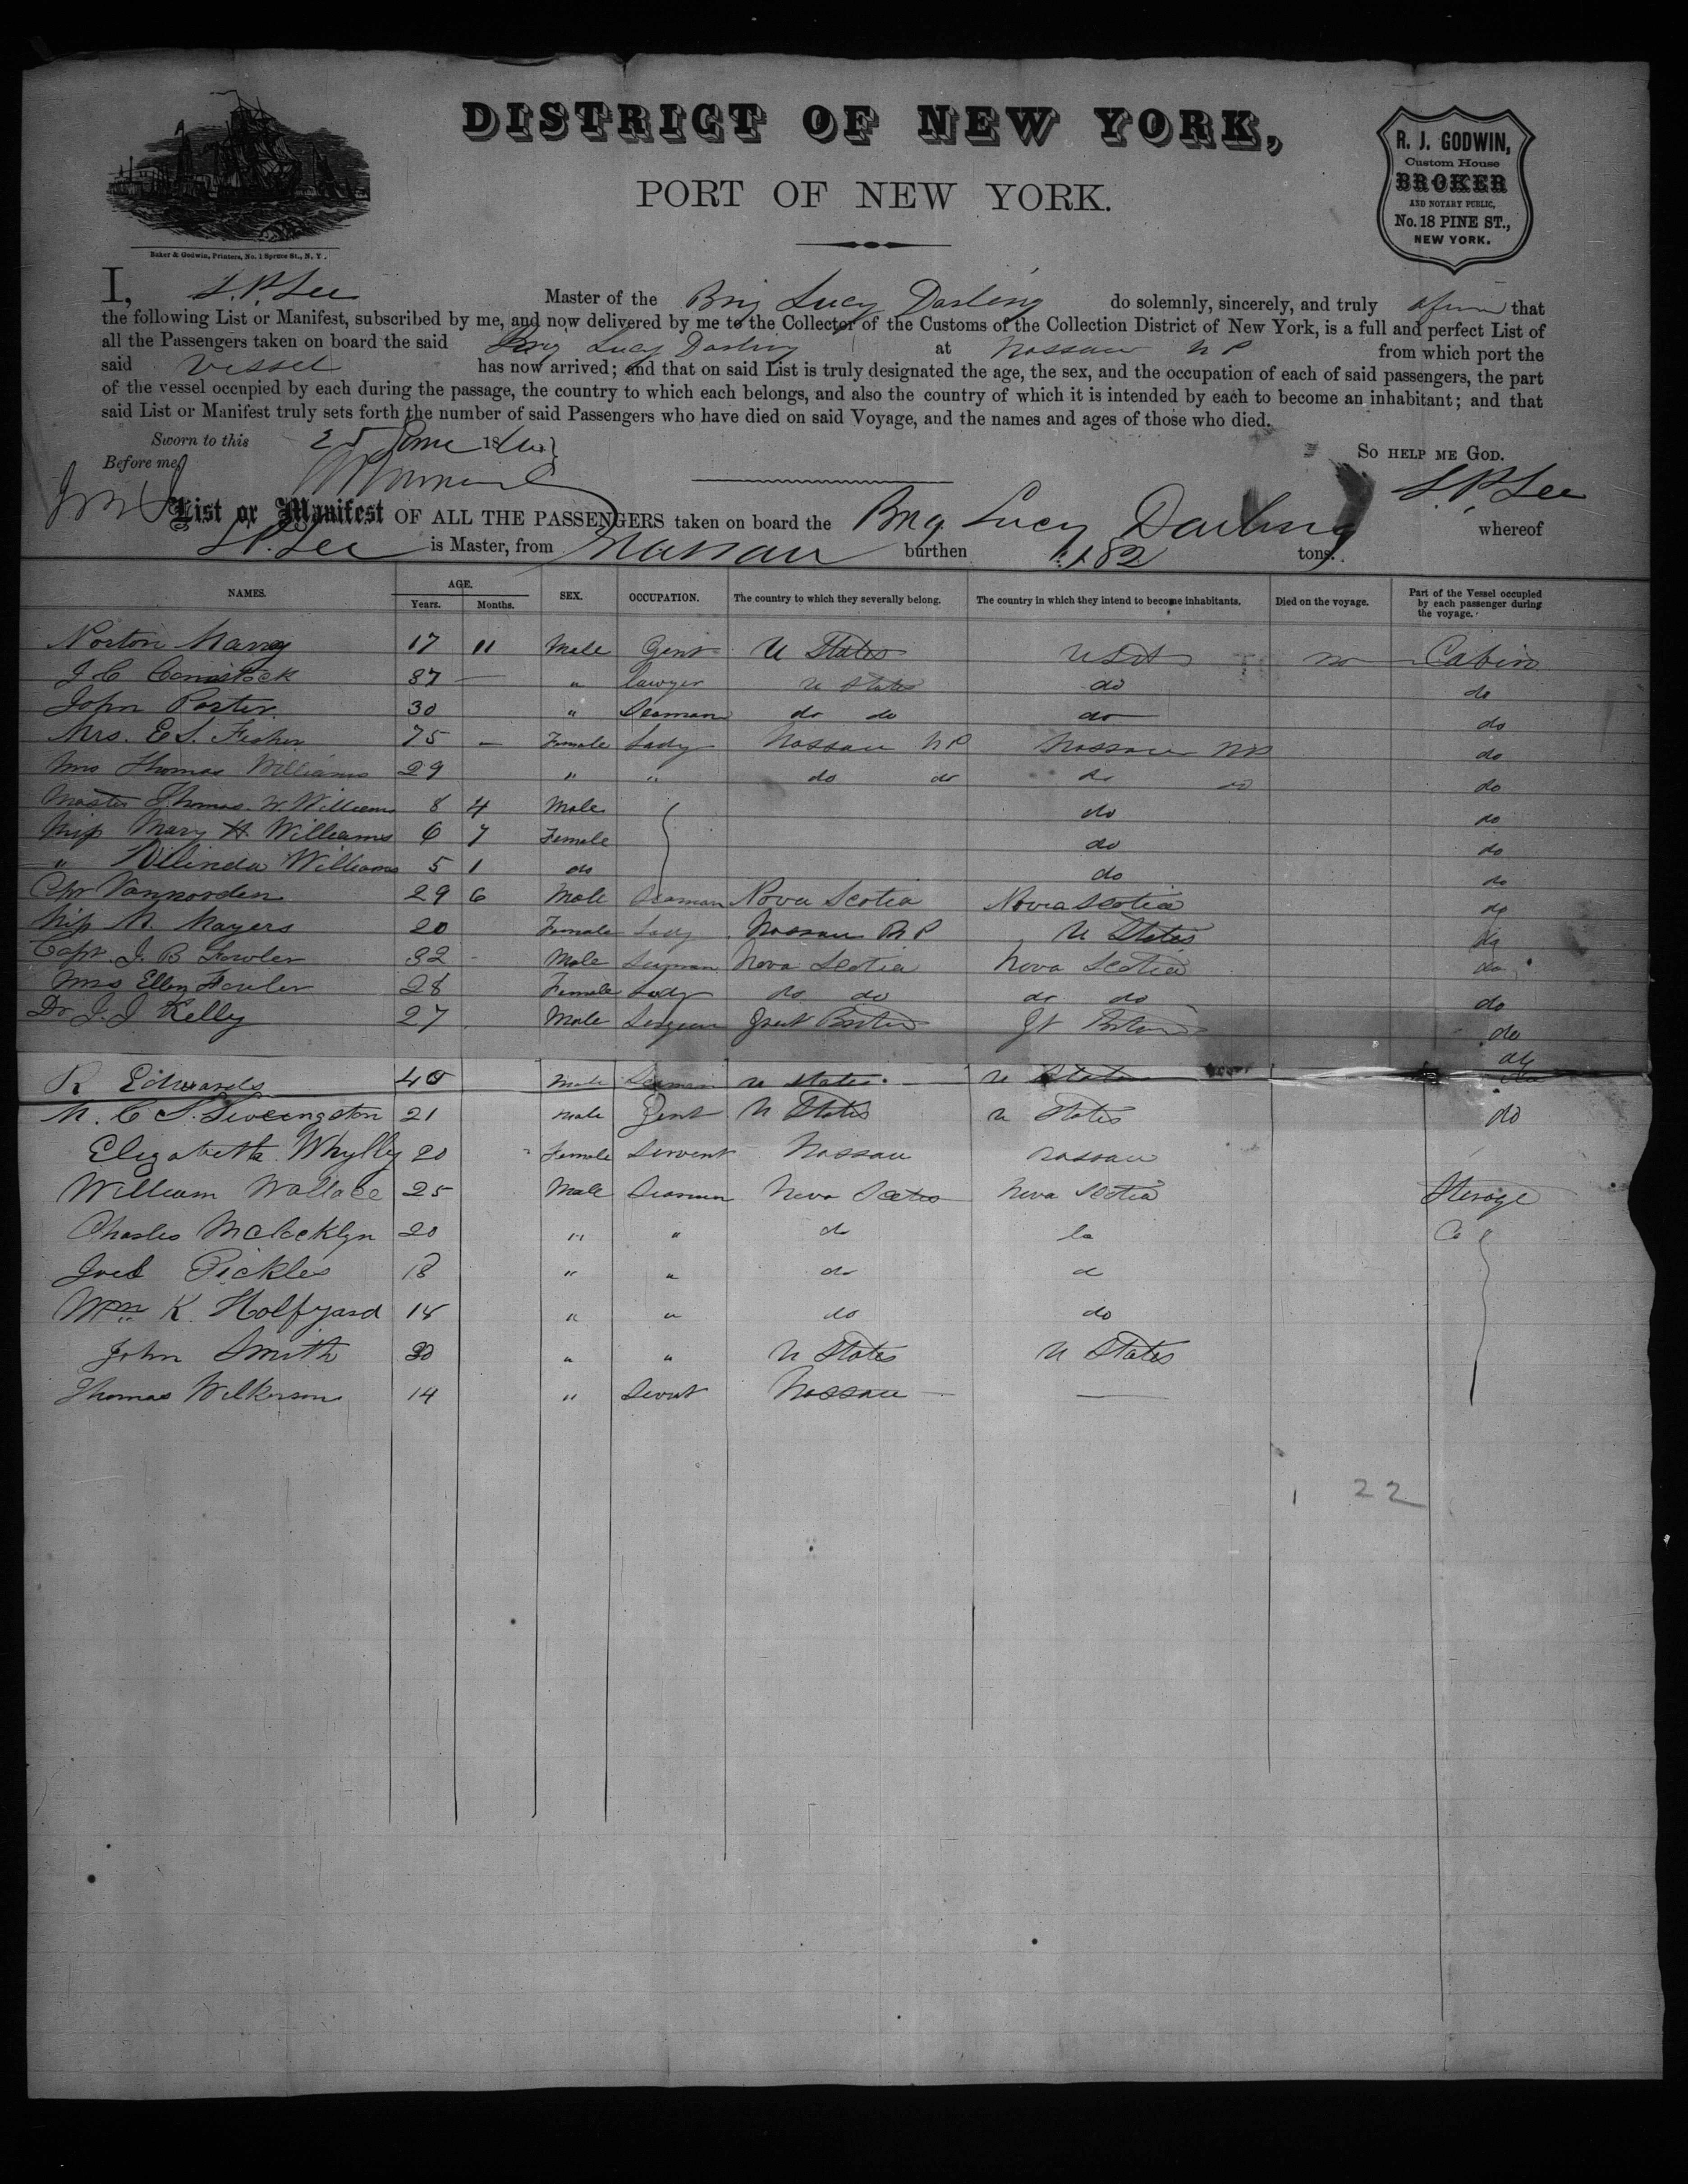 DISTRICT OF NEW YORK,
PORT OF NEW YORK.
Baker & Godwin, Printers, No. 1 Spruce St., N. Y.
R. J. GODWIN,
Custom House
BROKER
AND NOTARY PUBLIC,
No. 18 PINE ST.,
NEW YORK.
I, S. P. Lee Master of the Brig Lucy Darling do solemnly, sincerely, and truly that
the following List or Manifest, subscribed by me, and now delivered by me to the Collector of the Customs of the Collection District of New York, is a full and perfect List of
all the Passengers taken on board the said Brig Lucy Darling at Nassau N P from which port the
said Vessel has now arrived; and that on said List is truly designated the age, the sex, and the occupation of each of said passengers, the part
of the vessel occupied by each during the passage, the country to which each belongs, and also the country of which it is intended by each to become an inhabitant; and that
said List or Manifest truly sets forth the number of said Passengers who have died on said Voyage, and the names and ages of those who died.
Sworn to this 25 June 18
Before me, SO HELP ME GOD.
S. P. Lee
List or Manifest OF ALL THE PASSENGERS taken on board the Brig Lucy Darling whereof
S. P. Lee is Master, from Nassau burthen 182 tons.
NAMES. AGE. Years. Months. SEX. OCCUPATION. The country to which they severally belong. The country in which they intend to become inhabitants. Died on the voyage. Part of the Vessel occupied by each passenger during the voyage.
Norton 17 11 Male Gent U States USA no Cabin
J C Comstock 37 — " lawyer U States do do
John Porter 30 " Seaman do do do do
Mrs. E S. Fisher 75 — Female Lady Nassau N P Nassau NP do
Mrs Thomas Williams 29 " " do do do do do
Master Thomas W Williams 8 4 Male do do
Miss Mary H Williams 6 7 Female do do
" Williams 5 1 do do do
Vannorden 29 6 Male Seaman Nova Scotia Nova Scotia do
Miss N. Mayers 20 Female Lady Nassau N P U States do
Capt. J. B Fowler 32 - Male Seaman Nova Scotia Nova Scotia do
Mrs Ellen Fowler 28 Female Lady do do do do do
Dr J. J Kelly 27 Male Surgeon Great Britain Gt Britain do
R Edwards 40 Male Seaman U States U States do
N. C S. Liveingston 21 Male Gent U States U States do
Elizabeth Whylly 20 Female Servent Nassau Nassau
William Wallace 25 Male Seaman Nova Scotia Nova Scotia Sterage
Charles McLacklyn 20 " " do
Joel Pickles 18 " " do
Wm K. Holfyard 18 " " do do
John Smith 30 " " U States U States
Thomas Wilkerson 14 " Nassau — —
22